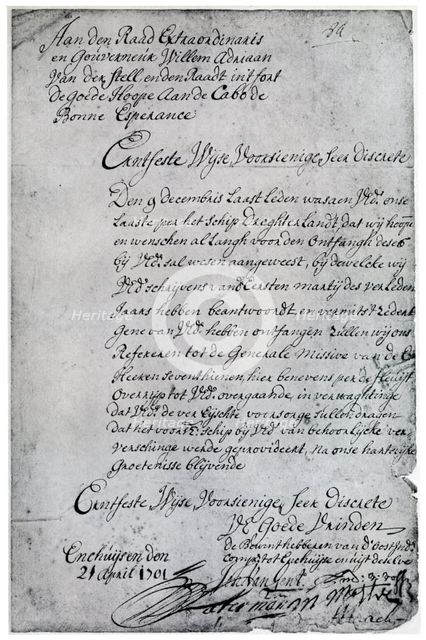 34
Aan den Raad Extraordinaris
en Gouverneur Willem Adriaan
Van der Stell en den Raadt in't fort
De Goede Hoope Aan de Cabo de
Bonne Esperance
Erntfeste Wijse, Voorsienige, Seer Discrete
Den 9 decembris Laast Leden was aen VEd. onse
Laaste per het schip Dreghterlandt, dat wij hoopen
en wenschen al langh voor den Ontfangh deses
bij VEd. sal wesen aangeweest, bij dewelcke wij
VEd. schrijvens van den Eersten martij des verleden
Jaars hebben beantwoordt, en vermits 't zedent
Gene van VEd. hebben ontfangen zullen wij ons
Refereren tot de Generale Missive van de
Heeren Seventhienen, hier benevens per de fluijt
Overrijp tot VEd. overgaande, in verwachtinge
dat VEd. de vereijschte voorsorge sullen dragen
dat het voorsz. schip bij VEd. van behoorlijcke ver
verschinge werde geprovideert, Na onse hartelijcke
Groetenisse blijvende
Erntfeste Wijse, Voorsienige, Seer Discrete
VE Goede Vrinden
Enchuijsen den
21 April 1701
de Bewinthebberen van d' Oost Indische
Comp. tot Enchuijse en uijt den
Heritage